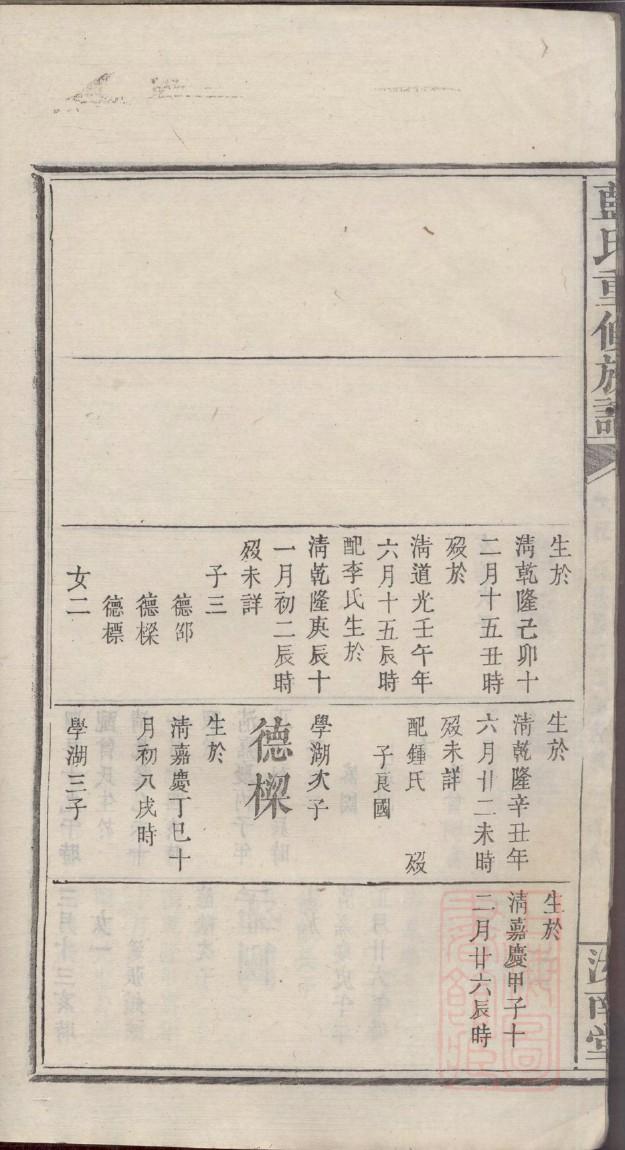 藍氏重修族譜
生於
清乾隆己卯十
二月十五丑時
歿於
清道光壬午年
六月十五辰時
配李氏生於
清乾隆庚辰十
一月初二辰時
歿未詳
子三
德邵
德樑
德標
女二
生於
清乾隆辛丑年
六月廿二未時
歿未詳
配鍾氏 歿
子良國
學湖次子
德樑
生於
清嘉慶丁巳十
月初八戌時
學湖三子
生於
清嘉慶甲子十
二月廿六辰時
汝南堂